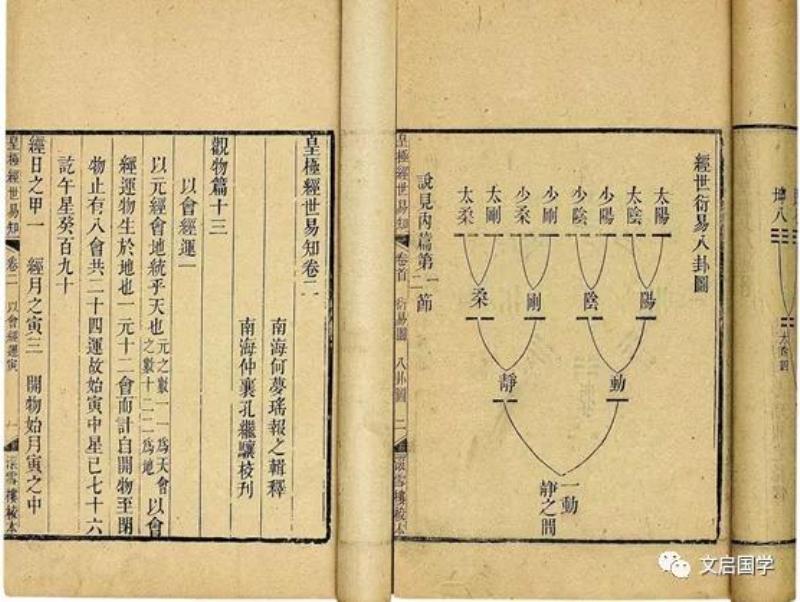 經世衍易八卦圖
太陽
太陰
少陽
少陰
少剛
少柔
太剛
太柔
陽
陰
剛
柔
動
靜
一動一靜之間
說見內篇第二節
皇極經世易知
卷首
衍易圖
八卦圖
二
皇極經世易知卷二
南海何夢瑤報之輯釋
南海仲襄孔繼驤校刊
觀物篇十三
以會經運一
以元經會地統乎天也元之數一一爲天會之數十二二爲地以會
經運物生於地也一元十二會而計自開物至閉
物止有八會共二十四運故始寅中星已七十六
訖午星癸百九十
經日之甲一 經月之寅三 開物始月寅之中
皇極經世易知
卷二
以會經運寅
一
文启国学